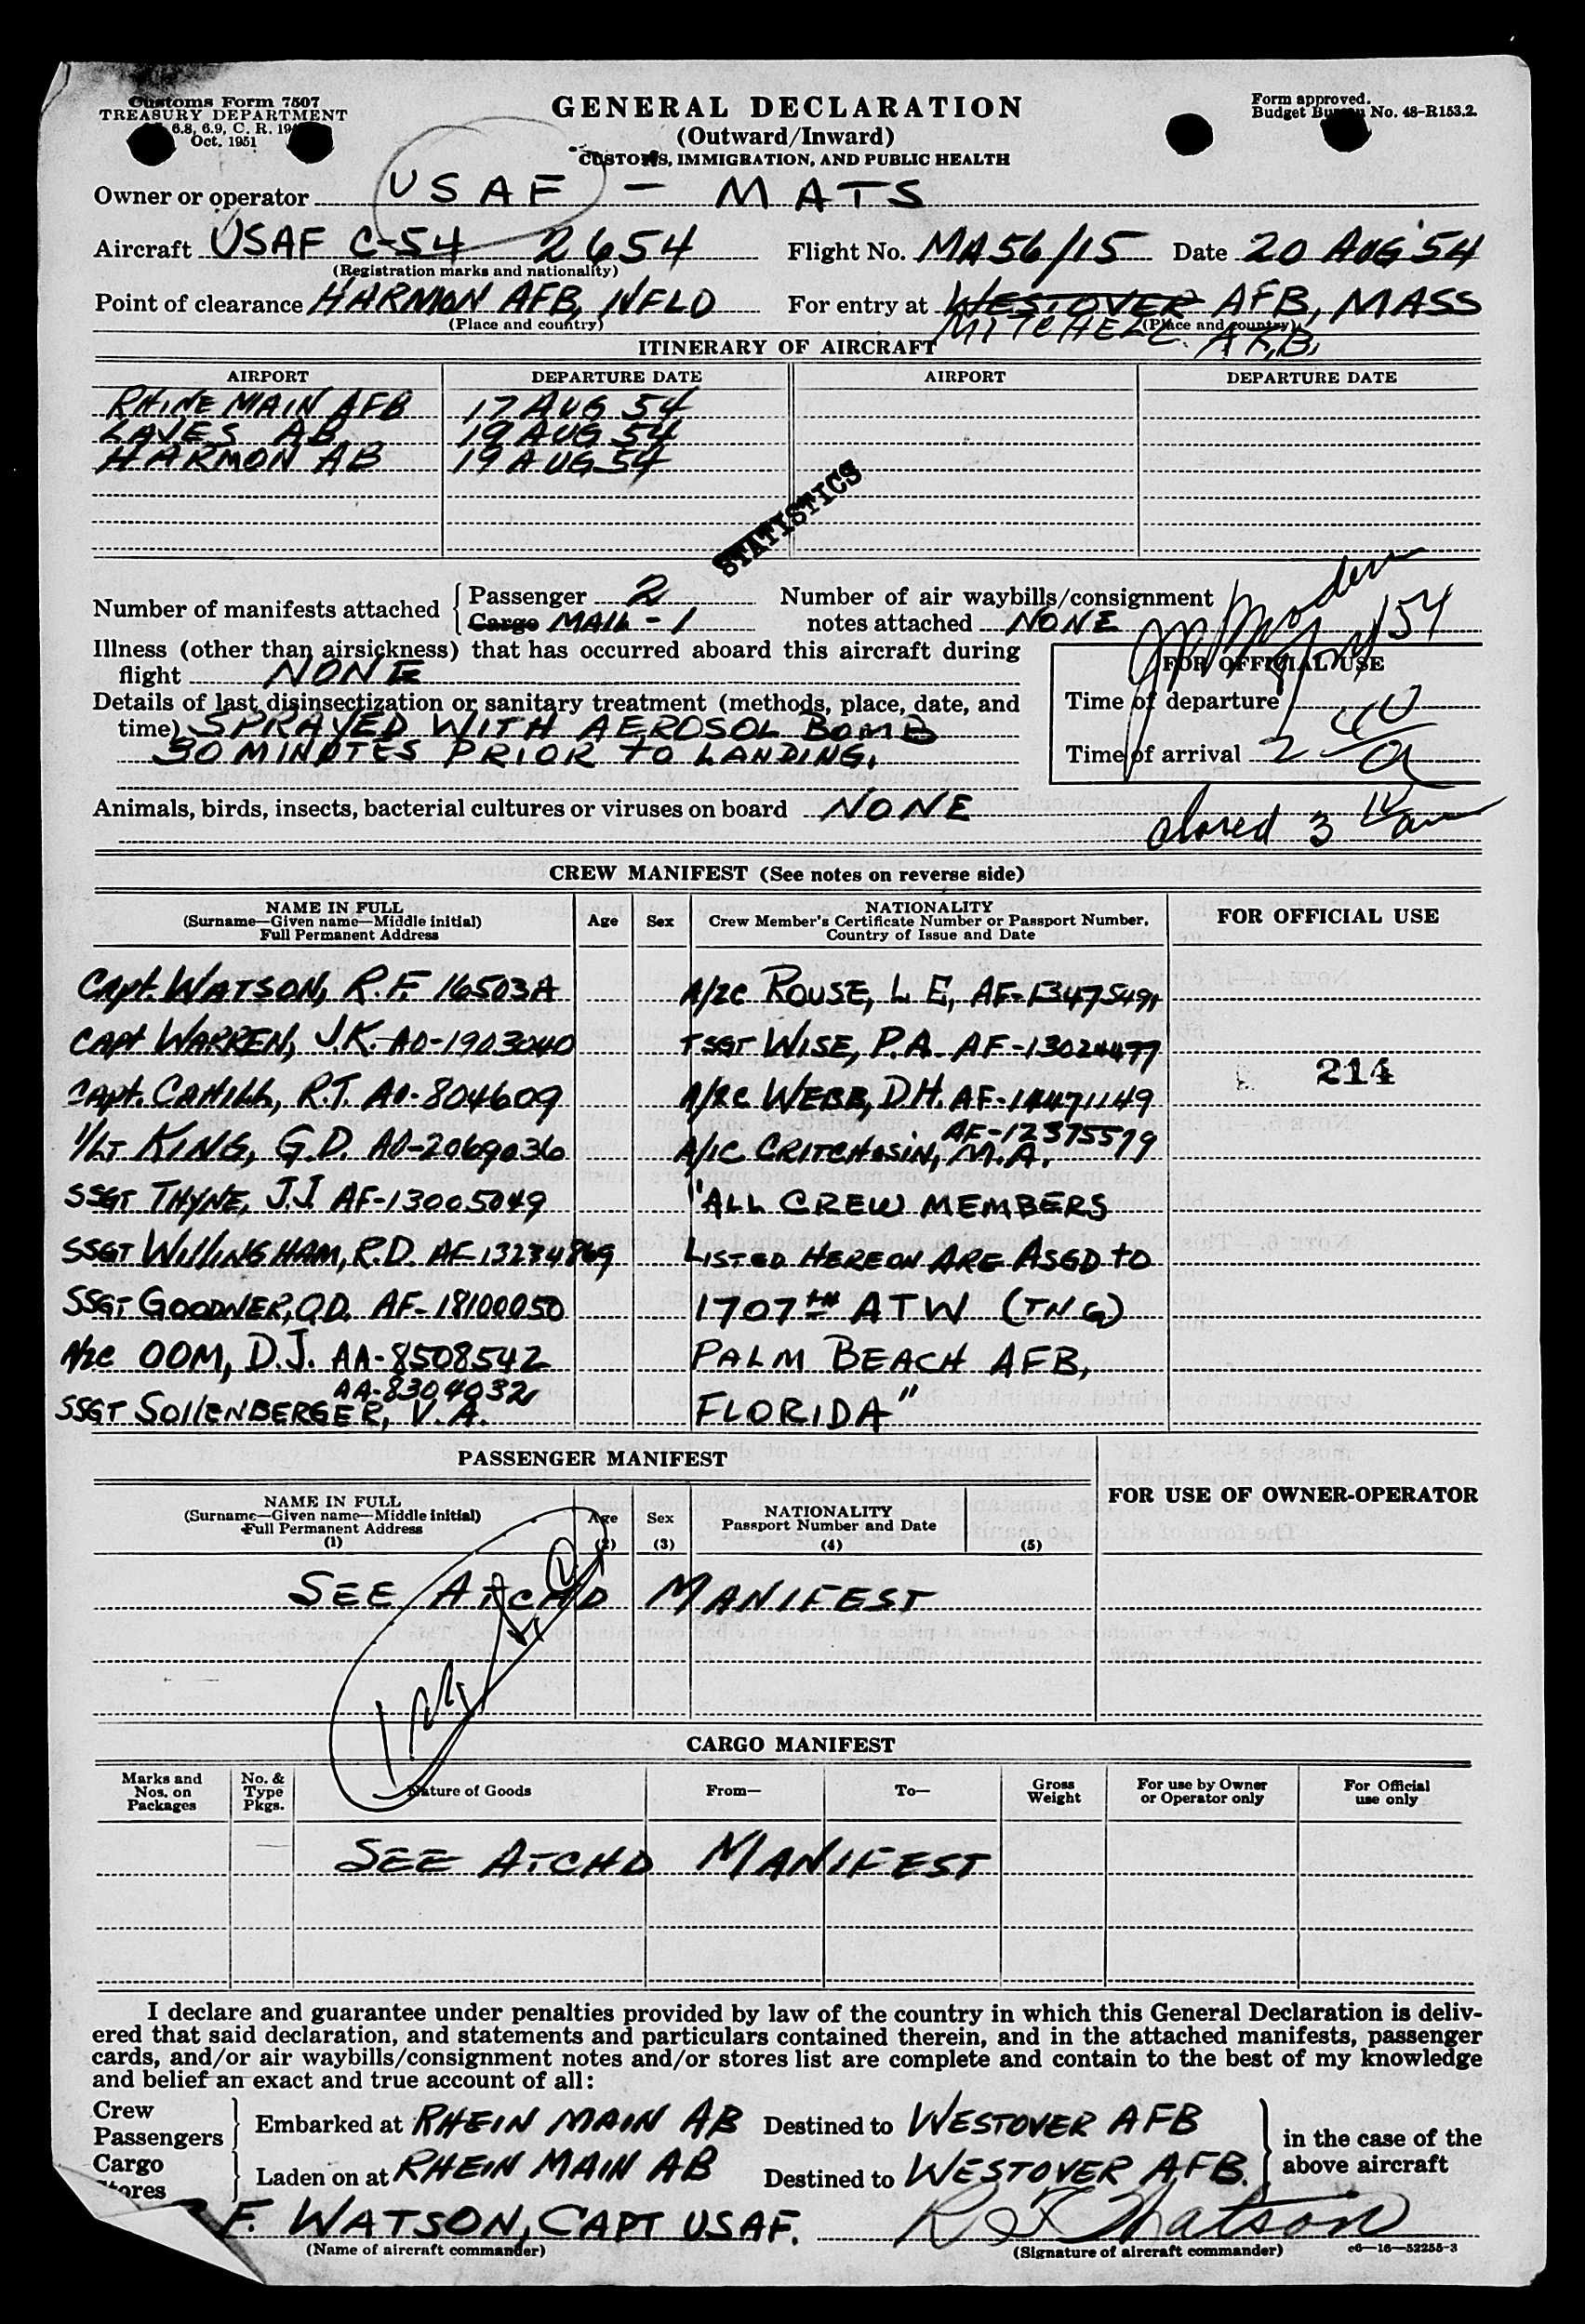 Customs Form 7507
TREASURY DEPARTMENT
6.8, 6.9, C. R. 19
Oct. 1951
GENERAL DECLARATION
(Outward/Inward)
CUSTOMS, IMMIGRATION, AND PUBLIC HEALTH
Form approved.
Budget Bureau No. 48-R153.2.
Owner or operator USAF - MATS
Aircraft USAF C-54 2654 Flight No. MA56/15 Date 20 AUG 54
(Registration marks and nationality)
Point of clearance HARMON AFB, NFLD For entry at WESTOVER AFB, MASS
(Place and country) (Place and country)
MITCHELL AFB,
ITINERARY OF AIRCRAFT
AIRPORT DEPARTURE DATE AIRPORT DEPARTURE DATE
RHINE MAIN AFB 17 AUG 54
LAJES AB 19 AUG 54
HARMON AB 19 AUG 54
STATISTICS
Number of manifests attached Passenger 2
Cargo MAIL - 1
Number of air waybills/consignment
notes attached NONE
54
Illness (other than airsickness) that has occurred aboard this aircraft during
flight NONE
FOR OFFICIAL USE
Time of departure
Time of arrival 2
Details of last disinsectization or sanitary treatment (methods, place, date, and
time) SPRAYED WITH AEROSOL BOMB
30 MINUTES PRIOR TO LANDING.
Animals, birds, insects, bacterial cultures or viruses on board NONE
3
CREW MANIFEST (See notes on reverse side)
NAME IN FULL
(Surname—Given name—Middle initial)
Full Permanent Address
Age Sex
NATIONALITY
Crew Member's Certificate Number or Passport Number,
Country of Issue and Date
FOR OFFICIAL USE
Capt. WATSON, R.F. 16503A A/2C ROUSE, L E, AF-13475491
CAPT WARREN, J.K. AO-1903040 TSGT WISE, P.A. AF-13024477
214
Capt. CAHILL, R.T. AO-804609 A/2C WEBB, D.H. AF-14471149
AF-12375579
1/LT KING, G.D. AO-2069036 A/1C CRITCHOSIN, M.A.
SSGT THYNE, J.J AF-13005049 "ALL CREW MEMBERS
SSGT WILLINGHAM, R.D. AF-13234869 LISTED HEREON ARE ASGD TO
SSGT GOODNER, O.D. AF-18100050 1707TH ATW (TNG)
A/2C OOM, D.J. AA-8508542 PALM BEACH AFB,
AA-8304032
SSGT SOLLENBERGER, V.A. FLORIDA"
PASSENGER MANIFEST
FOR USE OF OWNER-OPERATOR
NAME IN FULL
(Surname—Given name—Middle initial)
Full Permanent Address
(1)
Age
(2)
Sex
(3)
NATIONALITY
Passport Number and Date
(4) (5)
SEE ATCHD MANIFEST
CARGO MANIFEST
Marks and
Nos. on
Packages
No. &
Type
Pkgs.
Nature of Goods
From—
To—
Gross
Weight
For use by Owner
or Operator only
For Official
use only
SEE ATCHD MANIFEST
I declare and guarantee under penalties provided by law of the country in which this General Declaration is deliv-
ered that said declaration, and statements and particulars contained therein, and in the attached manifests, passenger
cards, and/or air waybills/consignment notes and/or stores list are complete and contain to the best of my knowledge
and belief an exact and true account of all:
Crew
Passengers Embarked at RHEIN MAIN AB Destined to WESTOVER AFB
in the case of the
above aircraft
Cargo
Stores Laden on at RHEIN MAIN AB Destined to WESTOVER AFB.
F. WATSON, CAPT USAF. R F Watson
(Name of aircraft commander) (Signature of aircraft commander) c6—16—52255-3